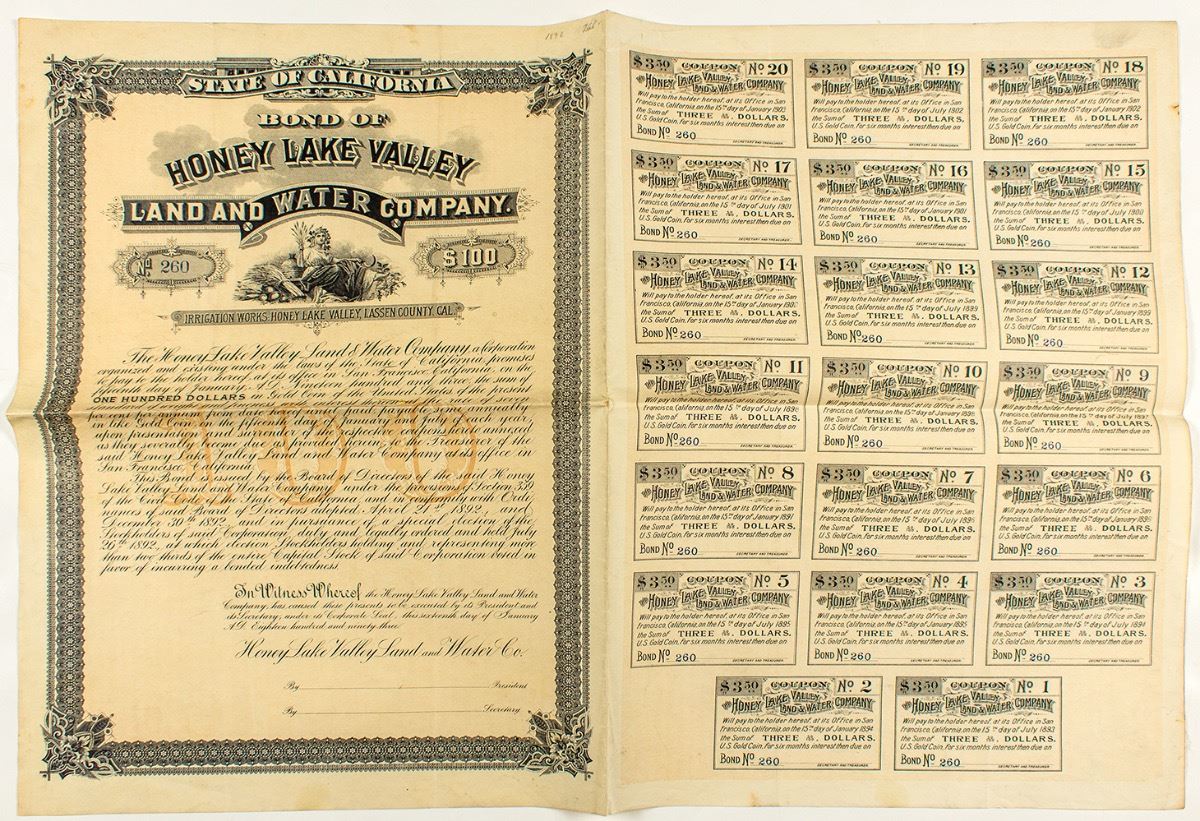 1892
STATE OF CALIFORNIA
BOND OF
HONEY LAKE VALLEY
LAND AND WATER COMPANY.
No 260
$100
IRRIGATION WORKS, HONEY LAKE VALLEY, LASSEN COUNTY, CAL.
The Honey Lake Valley Land & Water Company a Corporation
organized and existing under the Laws of the State of California, promises
to pay to the holder hereof at its office in San Francisco, California, on the
fifteenth day of January, A.D. Nineteen hundred and three, the sum of
ONE HUNDRED DOLLARS in Gold Coin of the United States of the present
rate of seven
percent per annum from date hereof until paid, payable semi annually
in like Gold Coin, on the fifteenth day of January and July of each year,
upon presentation and surrender of the respective coupons hereto annexed
as they severally become due as provided herein, to the Treasurer of the
said Honey Lake Valley Land and Water Company at its office in
San Francisco, California.
This Bond is issued by the Board of Directors of the said Honey
Lake Valley Land and Water Company under the provisions of Section 359
of the Civil Code of the State of California, and in conformity with Ordi-
nances of said Board of Directors adopted April 21st 1892, and
December 30th 1892, and in pursuance of a special election of the
Stockholders of said Corporation, duly and legally ordered and held July
26th 1892, at which election Stockholders holding and representing more
than two thirds of the entire Capital Stock of said Corporation voted in
favor of incurring a bonded indebtedness.
In Witness Whereof the Honey Lake Valley Land and Water
Company, has caused these presents to be executed by its President and
its Secretary, under its Corporate Seal, this sixteenth day of January
A.D. Eighteen hundred and ninety three.
Honey Lake Valley Land and Water Co.
By President
By Secretary
$3.50 COUPON No 20
THE HONEY LAKE VALLEY LAND & WATER COMPANY
Will pay to the holder hereof, at its Office in San
Francisco, California, on the 15th day of January 1903,
the Sum of THREE 50/100 DOLLARS.
U.S. Gold Coin, for six months interest then due on
BOND No 260
SECRETARY AND TREASURER
$3.50 COUPON No 19
THE HONEY LAKE VALLEY LAND & WATER COMPANY
Will pay to the holder hereof, at its Office in San
Francisco, California, on the 15th day of July 1902,
the Sum of THREE 50/100 DOLLARS.
U.S. Gold Coin, for six months interest then due on
BOND No 260
SECRETARY AND TREASURER
$3.50 COUPON No 18
THE HONEY LAKE VALLEY LAND & WATER COMPANY
Will pay to the holder hereof, at its Office in San
Francisco, California, on the 15th day of January 1902,
the Sum of THREE 50/100 DOLLARS.
U.S. Gold Coin, for six months interest then due on
BOND No 260
SECRETARY AND TREASURER
$3.50 COUPON No 17
THE HONEY LAKE VALLEY LAND & WATER COMPANY
Will pay to the holder hereof, at its Office in San
Francisco, California, on the 15th day of July 1901,
the Sum of THREE 50/100 DOLLARS.
U.S. Gold Coin, for six months interest then due on
BOND No 260
SECRETARY AND TREASURER
$3.50 COUPON No 16
THE HONEY LAKE VALLEY LAND & WATER COMPANY
Will pay to the holder hereof, at its Office in San
Francisco, California, on the 15th day of January 1901,
the Sum of THREE 50/100 DOLLARS.
U.S. Gold Coin, for six months interest then due on
BOND No 260
SECRETARY AND TREASURER
$3.50 COUPON No 15
THE HONEY LAKE VALLEY LAND & WATER COMPANY
Will pay to the holder hereof, at its Office in San
Francisco, California, on the 15th day of July 1900,
the Sum of THREE 50/100 DOLLARS.
U.S. Gold Coin, for six months interest then due on
BOND No 260
SECRETARY AND TREASURER
$3.50 COUPON No 14
THE HONEY LAKE VALLEY LAND & WATER COMPANY
Will pay to the holder hereof, at its Office in San
Francisco, California, on the 15th day of January 1900,
the Sum of THREE 50/100 DOLLARS.
U.S. Gold Coin, for six months interest then due on
BOND No 260
SECRETARY AND TREASURER
$3.50 COUPON No 13
THE HONEY LAKE VALLEY LAND & WATER COMPANY
Will pay to the holder hereof, at its Office in San
Francisco, California, on the 15th day of July 1899,
the Sum of THREE 50/100 DOLLARS.
U.S. Gold Coin, for six months interest then due on
BOND No 260
SECRETARY AND TREASURER
$3.50 COUPON No 12
THE HONEY LAKE VALLEY LAND & WATER COMPANY
Will pay to the holder hereof, at its Office in San
Francisco, California, on the 15th day of January 1899,
the Sum of THREE 50/100 DOLLARS.
U.S. Gold Coin, for six months interest then due on
BOND No 260
SECRETARY AND TREASURER
$3.50 COUPON No 11
THE HONEY LAKE VALLEY LAND & WATER COMPANY
Will pay to the holder hereof, at its Office in San
Francisco, California, on the 15th day of July
the Sum of THREE 50/100 DOLLARS.
U.S. Gold Coin, for six months interest then due on
BOND No 260
SECRETARY AND TREASURER
$3.50 COUPON No 10
THE HONEY LAKE VALLEY LAND & WATER COMPANY
Will pay to the holder hereof, at its Office in San
Francisco, California, on the 15th day of January
the Sum of THREE 50/100 DOLLARS.
U.S. Gold Coin, for six months interest then due on
BOND No 260
SECRETARY AND TREASURER
$3.50 COUPON No 9
THE HONEY LAKE VALLEY LAND & WATER COMPANY
Will pay to the holder hereof, at its Office in San
Francisco, California, on the 15th day of July 1897,
the Sum of THREE 50/100 DOLLARS.
U.S. Gold Coin, for six months interest then due on
BOND No 260
SECRETARY AND TREASURER
$3.50 COUPON No 8
THE HONEY LAKE VALLEY LAND & WATER COMPANY
Will pay to the holder hereof, at its Office in San
Francisco, California, on the 15th day of January
the Sum of THREE 50/100 DOLLARS.
U.S. Gold Coin, for six months interest then due on
BOND No 260
SECRETARY AND TREASURER
$3.50 COUPON No 7
THE HONEY LAKE VALLEY LAND & WATER COMPANY
Will pay to the holder hereof, at its Office in San
Francisco, California, on the 15th day of July
the Sum of THREE 50/100 DOLLARS.
U.S. Gold Coin, for six months interest then due on
BOND No 260
SECRETARY AND TREASURER
$3.50 COUPON No 6
THE HONEY LAKE VALLEY LAND & WATER COMPANY
Will pay to the holder hereof, at its Office in San
Francisco, California, on the 15th day of January
the Sum of THREE 50/100 DOLLARS.
U.S. Gold Coin, for six months interest then due on
BOND No 260
SECRETARY AND TREASURER
$3.50 COUPON No 5
THE HONEY LAKE VALLEY LAND & WATER COMPANY
Will pay to the holder hereof, at its Office in San
Francisco, California, on the 15th day of July 1895,
the Sum of THREE 50/100 DOLLARS.
U.S. Gold Coin, for six months interest then due on
BOND No 260
SECRETARY AND TREASURER
$3.50 COUPON No 4
THE HONEY LAKE VALLEY LAND & WATER COMPANY
Will pay to the holder hereof, at its Office in San
Francisco, California, on the 15th day of January 1895,
the Sum of THREE 50/100 DOLLARS.
U.S. Gold Coin, for six months interest then due on
BOND No 260
SECRETARY AND TREASURER
$3.50 COUPON No 3
THE HONEY LAKE VALLEY LAND & WATER COMPANY
Will pay to the holder hereof, at its Office in San
Francisco, California, on the 15th day of July 1894,
the Sum of THREE 50/100 DOLLARS.
U.S. Gold Coin, for six months interest then due on
BOND No 260
SECRETARY AND TREASURER
$3.50 COUPON No 2
THE HONEY LAKE VALLEY LAND & WATER COMPANY
Will pay to the holder hereof, at its Office in San
Francisco, California, on the 15th day of January 1894,
the Sum of THREE 50/100 DOLLARS.
U.S. Gold Coin, for six months interest then due on
BOND No 260
SECRETARY AND TREASURER
$3.50 COUPON No 1
THE HONEY LAKE VALLEY LAND & WATER COMPANY
Will pay to the holder hereof, at its Office in San
Francisco, California, on the 15th day of July 1893,
the Sum of THREE 50/100 DOLLARS.
U.S. Gold Coin, for six months interest then due on
BOND No 260
SECRETARY AND TREASURER